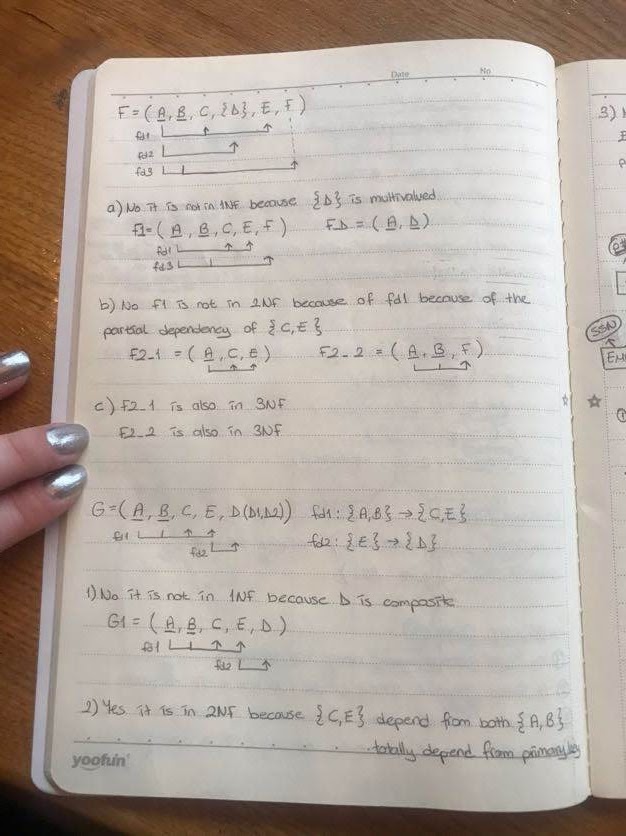 Date No
F = (A, B, C, {D}, E, F)
fd1
fd2
fd3
a) No it is not in 1NF because {D} is multivalued
F1 = (A, B, C, E, F) FD = (A, D)
fd1
fd3
b) No F1 is not in 2NF because of fd1 because of the
partial dependency of {C, E}
F2_1 = (A, C, E) F2_2 = (A, B, F)
c) F2_1 is also in 3NF
F2_2 is also in 3NF
G = (A, B, C, E, D(D1,D2)) fd1: {A,B} → {C,E}
fd1 fd2: {E} → {D}
fd2
1) No it is not in 1NF because D is composite
G1 = (A, B, C, E, D)
fd1
fd2
2) Yes it is in 2NF because {C,E} depend from both {A,B}
totally depend from primary key
yoofun
3)
SSN